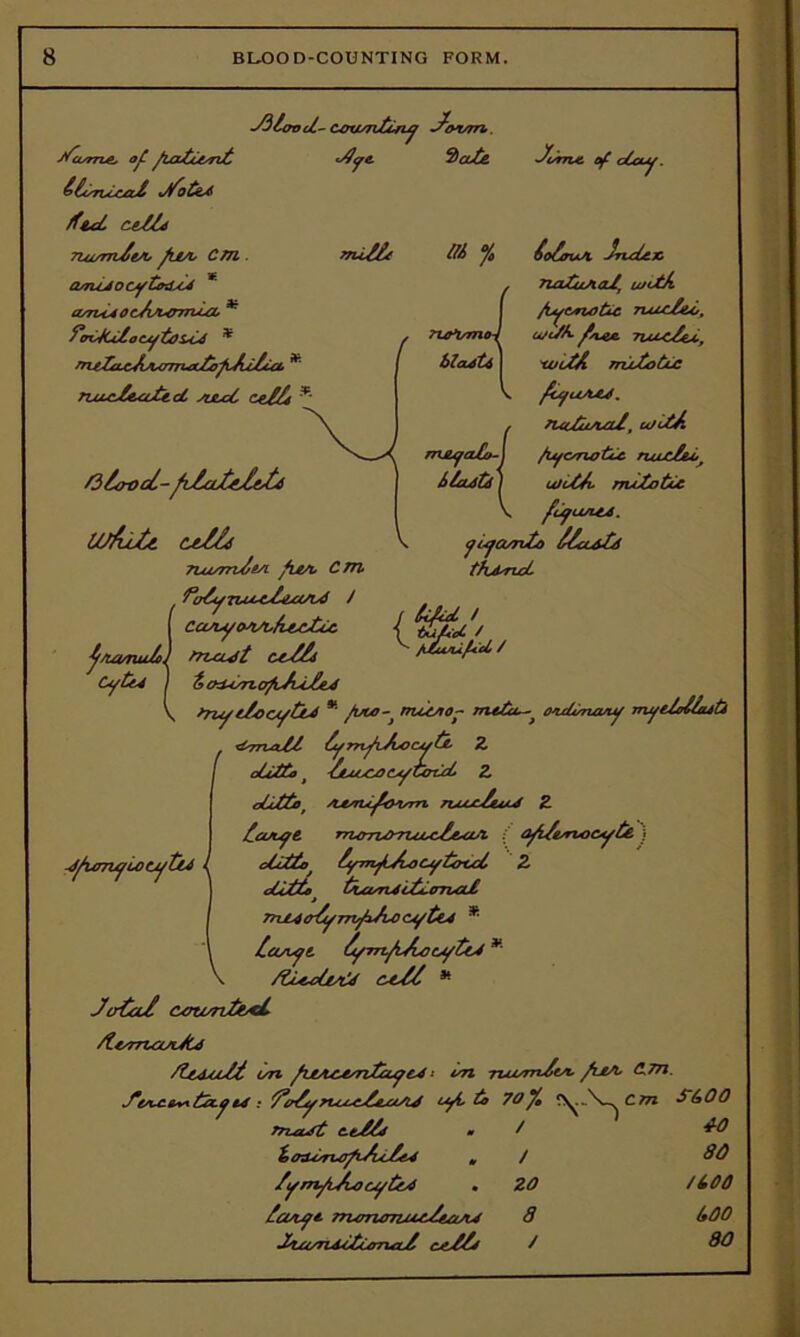 8 BLOOD-COUNTING FORM.
Blood-counting Form.
Name of patient Age Date Time of day.
Clinical Notes
Red cells
number per c m. mills Hb % Colour Index
anisocytosis *
anisochromia *
Poikilocytosis *
metachromatophilia *
nucleated red cells *
normoblasts natural, with
hycnotic nuclei,
with free nuclei,
with mitotic
figures.
megaloblasts natural, with
hycnotic nuclei,
with mitotic
figures.
Blood-platelets
giganto blasts
thrnd
White cells
number per c m
granulocytes
Polynuclears /
Caryorrhectic
mast cells
Eosinophiles
bifid /
tufid /
plurifid /
myelocytes * pro-, micro- meta-, ordinary myeloblasts
spongiocytes
small lymphocyte 2
ditto, leucocytoid 2
ditto, reniform nucleus 2
large mononuclear (splenocyte)
ditto, lymphocytoid 2
ditto, transitional
mesolymphocytes *
Large lymphocytes *
Rieders cell *
Total counted
Remarks
Result in percentages: in number per c.m.
Percentages: Polynuclears up to 70% cm 5600
mast cells " 1 40
Eosinophiles " 1 80
lymphocytes . 20 1600
Large mononuclears 8 600
Transitional cells 1 80